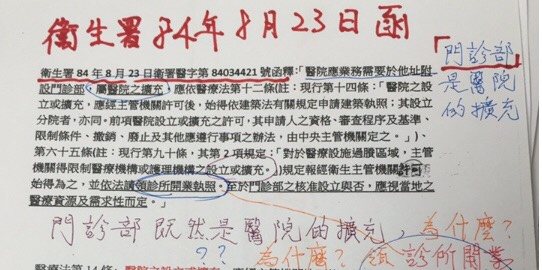 衛生署84年8月23日函
「門診部」
是醫院
的擴充
衛生署 84 年 8 月 23 日衛署醫字第 84034421 號函釋:「醫院應業務需要於他址附
設門診部,屬醫院之擴充,應依醫療法第十二條(註:現行第十四條:「醫院之設
立或擴充,應經主管機關許可後,始得依建築法有關規定申請建築執照;其設立
分院者,亦同。前項醫院設立或擴充之許可,其申請人之資格、審查程序及基準、
限制條件、撤銷、廢止及其他應遵行事項之辦法,由中央主管機關定之。」)、
第六十五條(註:現行第九十條,其第2項規定:「對於醫療設施過賸區域,主管
機關得限制醫療機構或護理機構之設立或擴充。」)規定報經衛生主管機關許可
始得為之,並依法請領診所開業執照。至於門診部之核准設立與否,應視當地之
醫療資源及需求性而定。」
門診部既然是醫院的擴充,為什麼?
??
為什麼?
領診所開業